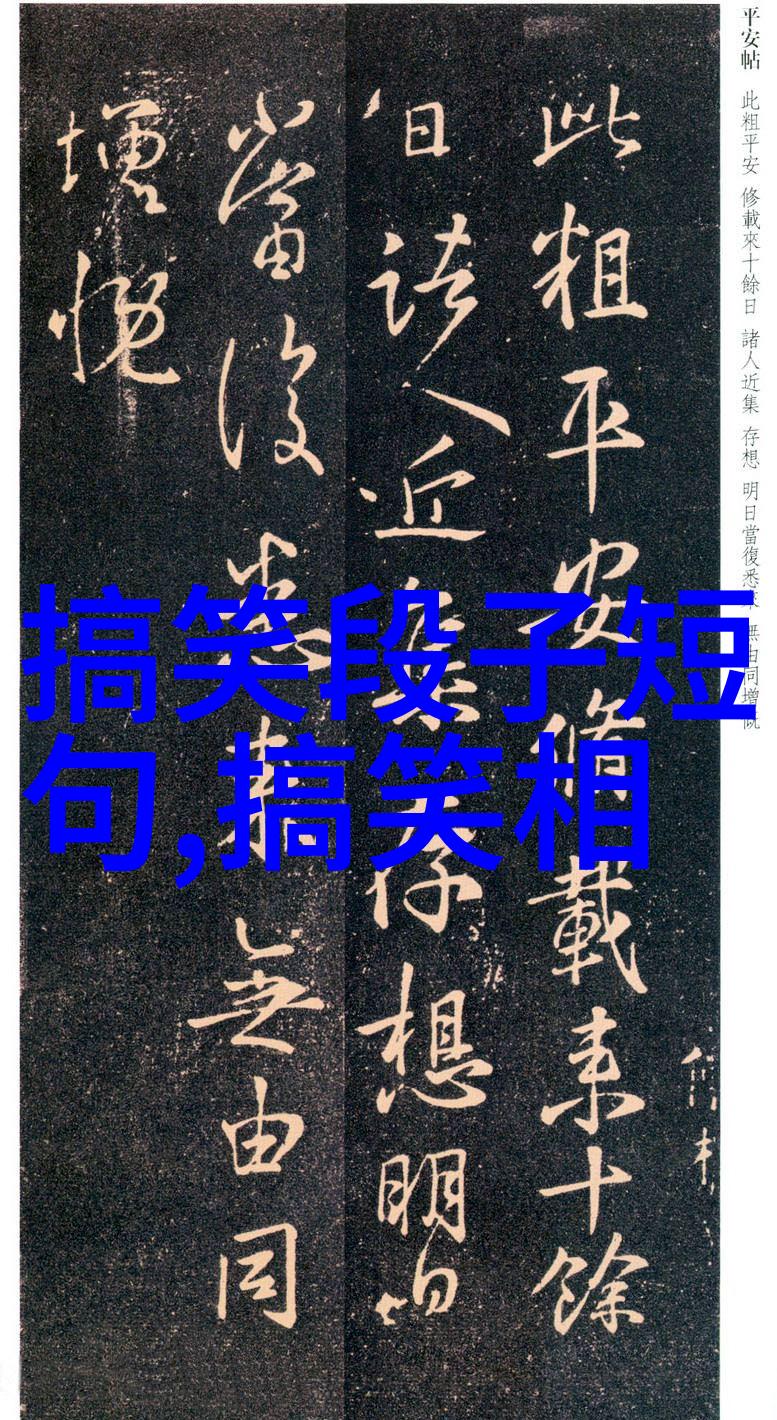 平安帖 此粗平安 修載來十餘日 諸人近集 存想 明日當復悉來 無由同增慨
此粗平安脩載來十餘
日諸人近集存想明日
當復悉來無由同
增慨
搞笑段子短
句,搞笑相